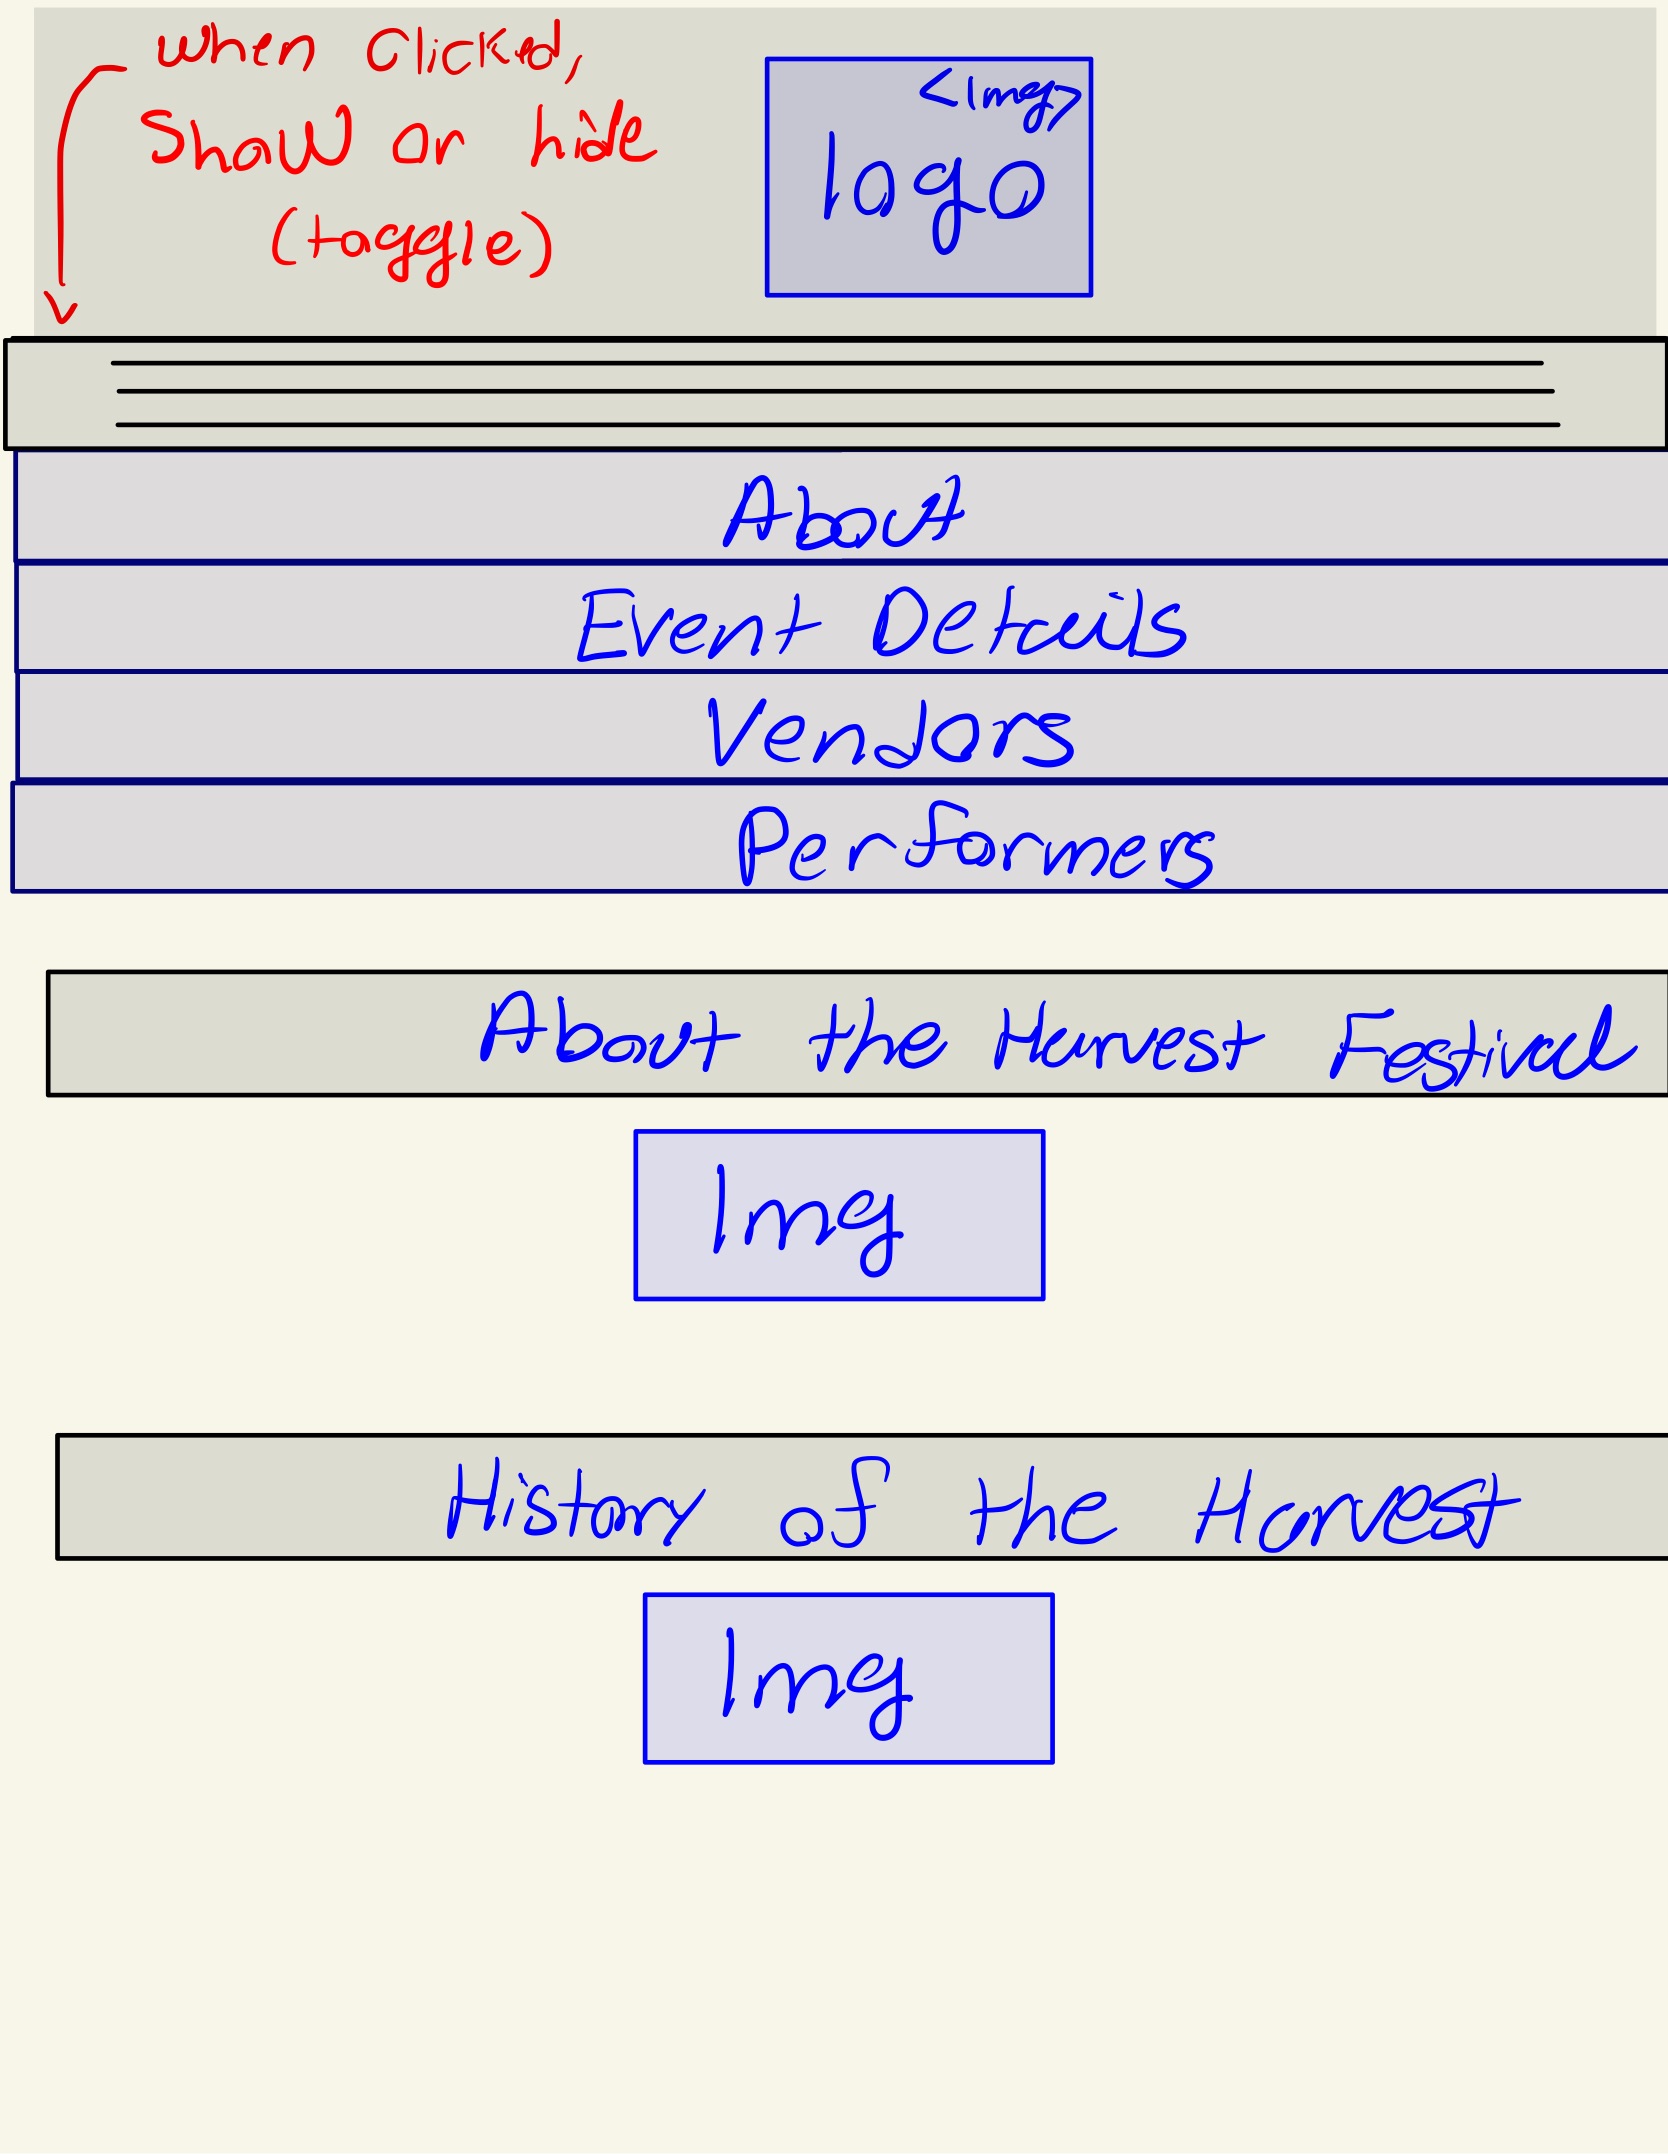 when Clicked,
Show or hide
(toggle)
<img>
logo
About
Event Details
Vendors
Performers
About the Harvest Festival
Img
History of the Harvest
Img